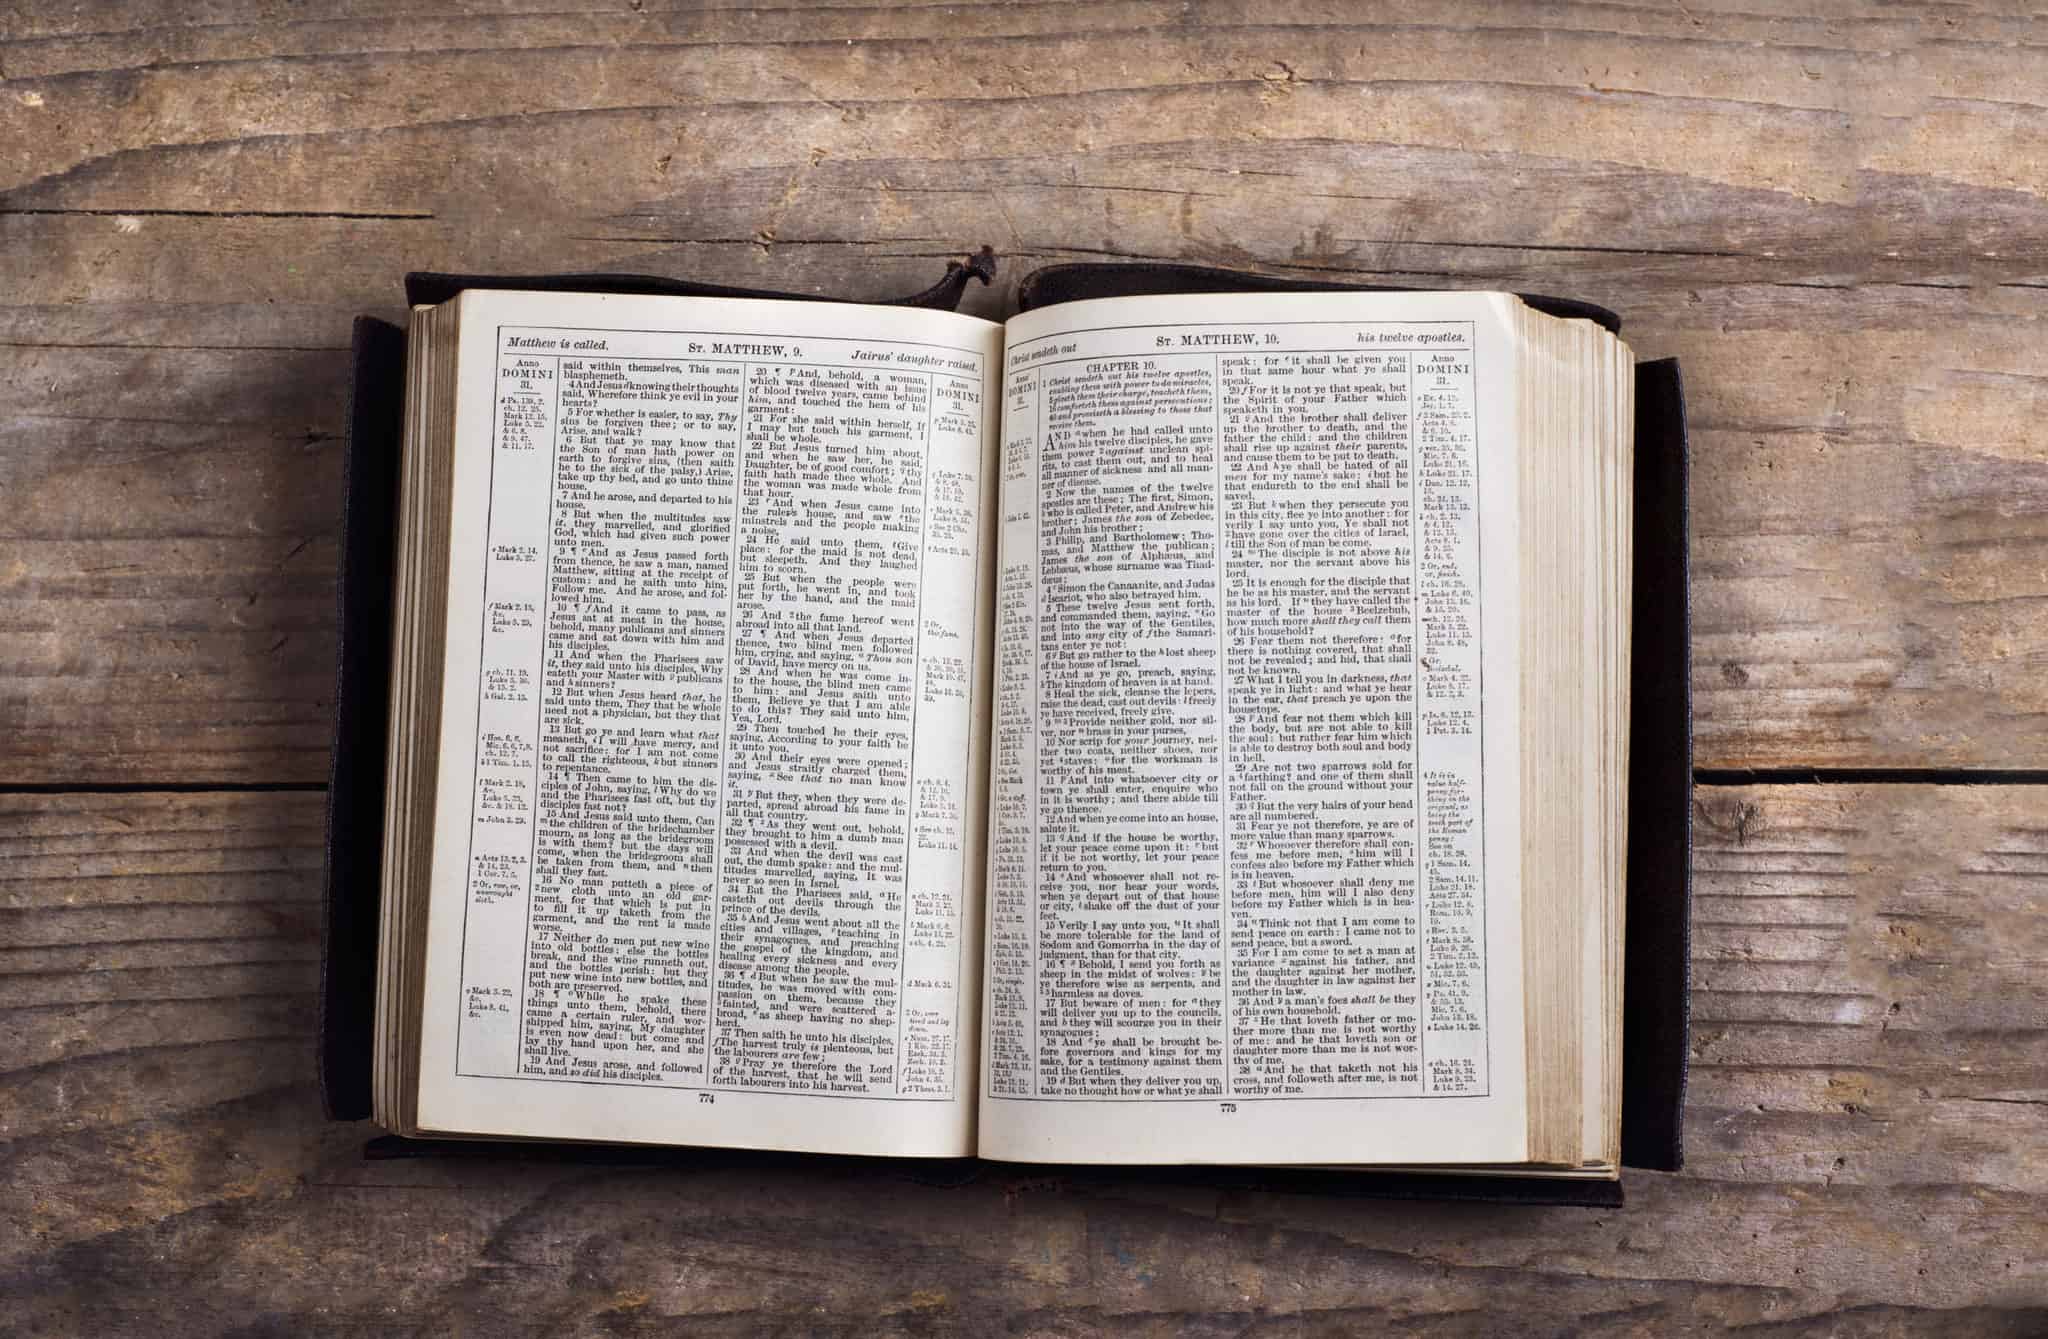 Matthew is called.
ST. MATTHEW, 9.
Jairus' daughter raised.
Anno
DOMINI
31.
d Ps. 139. 2.
ch. 12. 25.
Mark 12. 15.
Luke 5. 22.
& 6. 8.
& 9. 47.
& 11. 17.
e Mark 2. 14.
Luke 5. 27.
f Mark 2. 15,
&c.
Luke 5. 29,
&c.
g ch. 11. 19.
Luke 5. 30.
& 15. 2.
h Gal. 2. 15.
i Hos. 6. 6.
Mic. 6. 6, 7, 8.
ch. 12. 7.
k 1 Tim. 1. 15.
l Mark 2. 18,
&c.
Luke 5. 33,
&c. & 18. 12.
m John 3. 29.
n Acts 13. 2, 3.
& 14. 23.
1 Cor. 7. 5.
2 Or, raw, or,
unwrought
cloth.
o Mark 5. 22,
&c.
Luke 8. 41,
&c.
said within themselves, This man
blasphemeth.
4 And Jesus d knowing their thoughts
said, Wherefore think ye evil in your
hearts?
5 For whether is easier, to say, Thy
sins be forgiven thee; or to say,
Arise, and walk?
6 But that ye may know that
the Son of man hath power on
earth to forgive sins, (then saith
he to the sick of the palsy,) Arise,
take up thy bed, and go unto thine
house.
7 And he arose, and departed to his
house.
8 But when the multitudes saw
it, they marvelled, and glorified
God, which had given such power
unto men.
9 ¶ e And as Jesus passed forth
from thence, he saw a man, named
Matthew, sitting at the receipt of
custom: and he saith unto him,
Follow me. And he arose, and fol-
lowed him.
10 ¶ f And it came to pass, as
Jesus sat at meat in the house,
behold, many publicans and sinners
came and sat down with him and
his disciples.
11 And when the Pharisees saw
it, they said unto his disciples, Why
eateth your Master with g publicans
and h sinners?
12 But when Jesus heard that, he
said unto them, They that be whole
need not a physician, but they that
are sick.
13 But go ye and learn what that
meaneth, i I will have mercy, and
not sacrifice: for I am not come
to call the righteous, k but sinners
to repentance.
14 ¶ Then came to him the dis-
ciples of John, saying, l Why do we
and the Pharisees fast oft, but thy
disciples fast not?
15 And Jesus said unto them, Can
m the children of the bridechamber
mourn, as long as the bridegroom
is with them? but the days will
come, when the bridegroom shall
be taken from them, and n then
shall they fast.
16 No man putteth a piece of
2 new cloth unto an old gar-
ment, for that which is put in
to fill it up taketh from the
garment, and the rent is made
worse.
17 Neither do men put new wine
into old bottles: else the bottles
break, and the wine runneth out,
and the bottles perish: but they
put new wine into new bottles, and
both are preserved.
18 ¶ o While he spake these
things unto them, behold, there
came a certain ruler, and wor-
shipped him, saying, My daughter
is even now dead: but come and
lay thy hand upon her, and she
shall live.
19 And Jesus arose, and followed
him, and so did his disciples.
20 ¶ p And, behold, a woman,
which was diseased with an issue
of blood twelve years, came behind
him, and touched the hem of his
garment:
21 For she said within herself, If
I may but touch his garment, I
shall be whole.
22 But Jesus turned him about,
and when he saw her, he said,
Daughter, be of good comfort; q thy
faith hath made thee whole. And
the woman was made whole from
that hour.
23 r And when Jesus came into
the ruler's house, and saw s the
minstrels and the people making
a noise,
24 He said unto them, t Give
place: for the maid is not dead,
but sleepeth. And they laughed
him to scorn.
25 But when the people were
put forth, he went in, and took
her by the hand, and the maid
arose.
26 And 2 the fame hereof went
abroad into all that land.
27 ¶ And when Jesus departed
thence, two blind men followed
him, crying, and saying, u Thou son
of David, have mercy on us.
28 And when he was come in-
to the house, the blind men came
to him: and Jesus saith unto
them, Believe ye that I am able
to do this? They said unto him,
Yea, Lord.
29 Then touched he their eyes,
saying, According to your faith be
it unto you.
30 And their eyes were opened;
and Jesus straitly charged them,
saying, x See that no man know
it.
31 y But they, when they were de-
parted, spread abroad his fame in
all that country.
32 ¶ z As they went out, behold,
they brought to him a dumb man
possessed with a devil.
33 And when the devil was cast
out, the dumb spake: and the mul-
titudes marvelled, saying, It was
never so seen in Israel.
34 But the Pharisees said, a He
casteth out devils through the
prince of the devils.
35 b And Jesus went about all the
cities and villages, c teaching in
their synagogues, and preaching
the gospel of the kingdom, and
healing every sickness and every
disease among the people.
36 ¶ d But when he saw the mul-
titudes, he was moved with com-
passion on them, because they
2 fainted, and were scattered a-
broad, e as sheep having no shep-
herd.
37 Then saith he unto his disciples,
f The harvest truly is plenteous, but
the labourers are few;
38 g Pray ye therefore the Lord
of the harvest, that he will send
forth labourers into his harvest.
Anno
DOMINI
31.
p Mark 5. 25.
Luke 8. 43.
q Luke 7. 50.
& 8. 48.
& 17. 19.
& 18. 42.
r Mark 5. 38.
Luke 8. 51.
s See 2 Chr.
35. 25.
t Acts 20. 10.
2 Or,
this fame.
u ch. 15. 22.
& 20. 30, 31.
Mark 10. 47,
48.
Luke 18. 38,
39.
x ch. 8. 4.
& 12. 16.
& 17. 9.
Luke 5. 14.
y Mark 7. 36.
z See ch. 12.
22.
Luke 11. 14.
a ch. 12. 24.
Mark 3. 22.
Luke 11. 15.
b Mark 6. 6.
Luke 13. 22.
c ch. 4. 23.
d Mark 6. 34.
2 Or, were
tired and lay
down.
e Num. 27. 17.
1 Kin. 22. 17.
Ezek. 34. 5.
Zech. 10. 2.
f Luke 10. 2.
John 4. 35.
g 2 Thess. 3. 1.
774
Christ sendeth out
ST. MATTHEW, 10.
his twelve apostles.
Anno
DOMINI
31.
CHAPTER 10.
1 Christ sendeth out his twelve apostles,
enabling them with power to do miracles,
5 giveth them their charge, teacheth them,
16 comforteth them against persecutions:
40 and promiseth a blessing to those that
receive them.
AND a when he had called unto
him his twelve disciples, he gave
them power 2 against unclean spi-
rits, to cast them out, and to heal
all manner of sickness and all man-
ner of disease.
2 Now the names of the twelve
apostles are these; The first, Simon,
b who is called Peter, and Andrew his
brother; James the son of Zebedee,
and John his brother;
3 Philip, and Bartholomew; Tho-
mas, and Matthew the publican;
James the son of Alphæus, and
Lebbæus, whose surname was Thad-
dæus;
4 c Simon the Canaanite, and Judas
d Iscariot, who also betrayed him.
5 These twelve Jesus sent forth,
and commanded them, saying, e Go
not into the way of the Gentiles,
and into any city of f the Samari-
tans enter ye not:
6 g But go rather to the h lost sheep
of the house of Israel.
7 i And as ye go, preach, saying,
k The kingdom of heaven is at hand.
8 Heal the sick, cleanse the lepers,
raise the dead, cast out devils: l freely
ye have received, freely give.
9 m 3 Provide neither gold, nor sil-
ver, nor n brass in your purses,
10 Nor scrip for your journey, nei-
ther two coats, neither shoes, nor
yet 4 staves: o for the workman is
worthy of his meat.
11 p And into whatsoever city or
town ye shall enter, enquire who
in it is worthy; and there abide till
ye go thence.
12 And when ye come into an house,
salute it.
13 q And if the house be worthy,
let your peace come upon it: r but
if it be not worthy, let your peace
return to you.
14 s And whosoever shall not re-
ceive you, nor hear your words,
when ye depart out of that house
or city, t shake off the dust of your
feet.
15 Verily I say unto you, u It shall
be more tolerable for the land of
Sodom and Gomorrha in the day of
judgment, than for that city.
16 ¶ x Behold, I send you forth as
sheep in the midst of wolves: y be
ye therefore wise as serpents, and
z 5 harmless as doves.
17 But beware of men: for a they
will deliver you up to the councils,
and b they will scourge you in their
synagogues;
18 And c ye shall be brought be-
fore governors and kings for my
sake, for a testimony against them
and the Gentiles.
19 d But when they deliver you up,
take no thought how or what ye shall
speak: for e it shall be given you
in that same hour what ye shall
speak.
20 f For it is not ye that speak, but
the Spirit of your Father which
speaketh in you.
21 g And the brother shall deliver
up the brother to death, and the
father the child: and the children
shall rise up against their parents,
and cause them to be put to death.
22 And h ye shall be hated of all
men for my name's sake: i but he
that endureth to the end shall be
saved.
23 But k when they persecute you
in this city, flee ye into another: for
verily I say unto you, Ye shall not
2 have gone over the cities of Israel,
l till the Son of man be come.
24 m The disciple is not above his
master, nor the servant above his
lord.
25 It is enough for the disciple that
he be as his master, and the servant
as his lord. If n they have called the
master of the house 3 Beelzebub,
how much more shall they call them
of his household?
26 Fear them not therefore: o for
there is nothing covered, that shall
not be revealed; and hid, that shall
not be known.
27 What I tell you in darkness, that
speak ye in light: and what ye hear
in the ear, that preach ye upon the
housetops.
28 p And fear not them which kill
the body, but are not able to kill
the soul: but rather fear him which
is able to destroy both soul and body
in hell.
29 Are not two sparrows sold for
a 4 farthing? and one of them shall
not fall on the ground without your
Father.
30 q But the very hairs of your head
are all numbered.
31 Fear ye not therefore, ye are of
more value than many sparrows.
32 r Whosoever therefore shall con-
fess me before men, s him will I
confess also before my Father which
is in heaven.
33 t But whosoever shall deny me
before men, him will I also deny
before my Father which is in hea-
ven.
34 u Think not that I am come to
send peace on earth: I came not to
send peace, but a sword.
35 For I am come to set a man at
variance x against his father, and
the daughter against her mother,
and the daughter in law against her
mother in law.
36 And y a man's foes shall be they
of his own household.
37 z He that loveth father or mo-
ther more than me is not worthy
of me: and he that loveth son or
daughter more than me is not wor-
thy of me.
38 a And he that taketh not his
cross, and followeth after me, is not
worthy of me.
Anno
DOMINI
31.
e Ex. 4. 12.
Jer. 1. 7.
f 2 Sam. 23. 2.
Acts 4. 8.
& 6. 10.
2 Tim. 4. 17.
g ver. 35, 36.
Mic. 7. 6.
Luke 21. 16.
h Luke 21. 17.
i Dan. 12. 12,
13.
ch. 24. 13.
Mark 13. 13.
k ch. 2. 13.
& 4. 12.
& 12. 15.
Acts 8. 1.
& 9. 25.
& 14. 6.
2 Or, end,
or, finish.
l ch. 16. 28.
m Luke 6. 40.
John 13. 16.
& 15. 20.
n ch. 12. 24.
Mark 3. 22.
Luke 11. 15.
John 8. 48,
52.
3 Or,
Beelzebul.
o Mark 4. 22.
Luke 8. 17.
& 12. 2, 3.
p Is. 8. 12, 13.
Luke 12. 4.
1 Pet. 3. 14.
4 It is in
value half-
penny far-
thing in the
original, as
being the
tenth part of
the Roman
penny:
See on
ch. 18. 28.
q 1 Sam. 14.
45.
2 Sam. 14. 11.
Luke 21. 18.
Acts 27. 34.
r Luke 12. 8.
Rom. 10. 9,
10.
s Rev. 3. 5.
t Mark 8. 38.
Luke 9. 26.
2 Tim. 2. 12.
u Luke 12. 49,
51, 52, 53.
x Mic. 7. 6.
y Ps. 41. 9.
& 55. 13.
Mic. 7. 6.
John 13. 18.
z Luke 14. 26.
a ch. 16. 24.
Mark 8. 34.
Luke 9. 23.
& 14. 27.
775